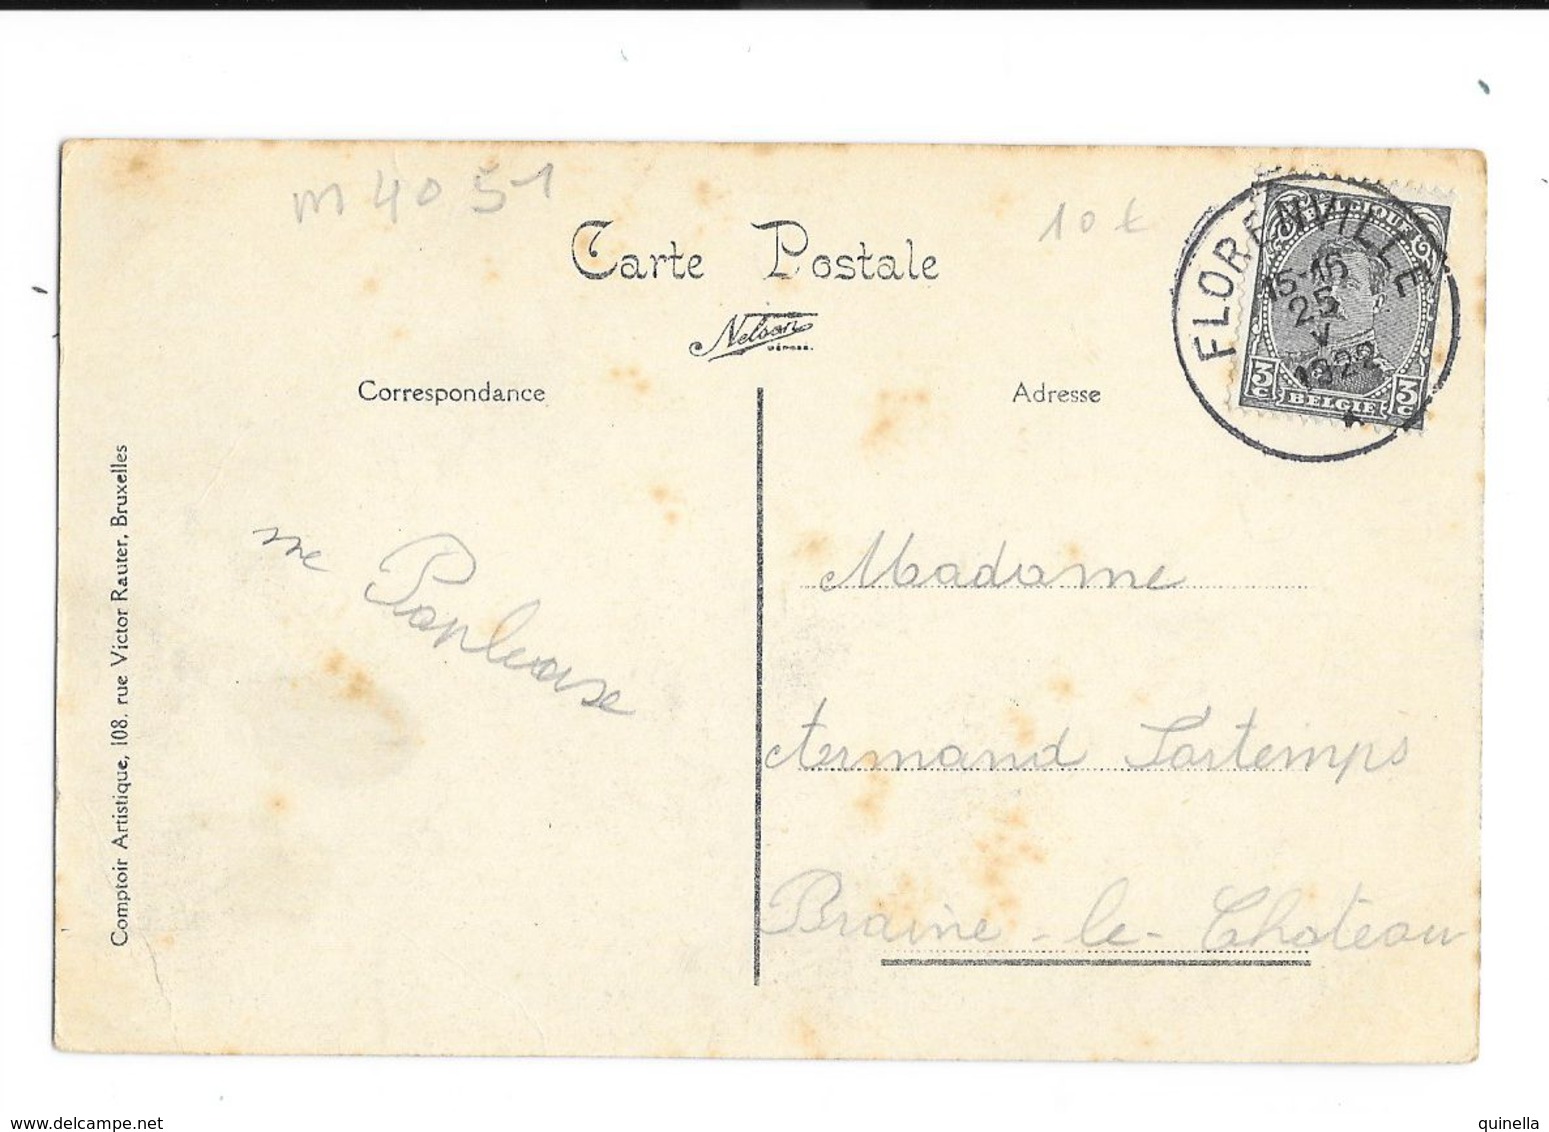 m 4051
10 €
Carte Postale
Nelson
DÉPOSÉ.
Correspondance
Adresse
FLORENVILLE
15-16
25
V
1922
BELGIQUE
3 C
BELGIE
3 C
Comptoir Artistique, 108, rue Victor Rauter, Bruxelles
me
Madame
Armand Partemps
Braine-le-Chateau
www.delcampe.net
quinella